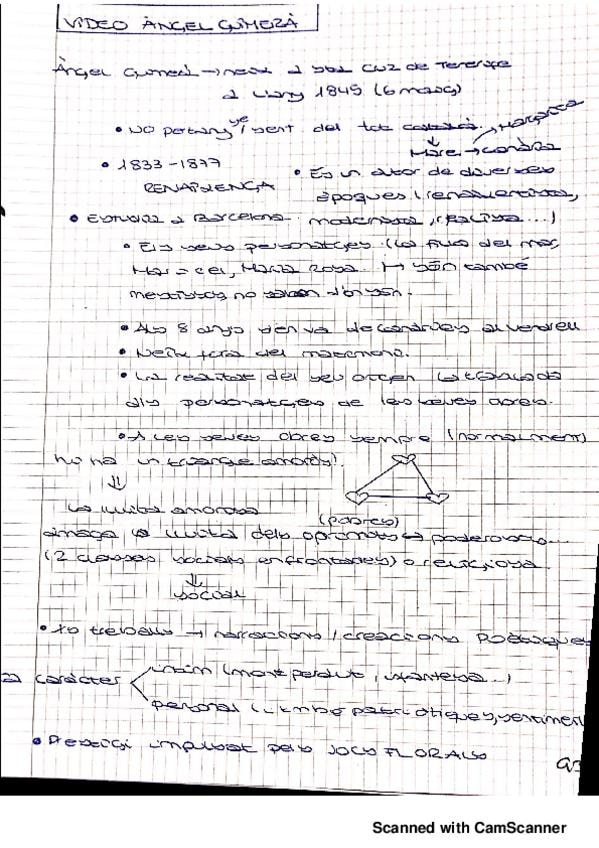 VIDEO ÀNGEL GUIMERÀ
Àngel Guimerà → neix a Santa Cruz de Tenerife
a l'any 1845 (6 maig)
• No pertany ni sent del tot català. → Marçona
Mare → canària
• 1833-1877 • És un autor de diverses
RENAIXENÇA èpoques (renaixentista,
• Estudia a Barcelona modernista, realista...)
• Els seus personatges (La filla del mar,
Mar i cel, Maria Rosa → són també
mestissos, no saben d'on són.
• Als 8 anys se'n va de Canàries al Vendrell
• Neix fora del matrimoni.
• La realitat del seu origen la trasllada
als personatges de les seves obres.
• A les seves obres sempre (normalment)
hi ha un triangle amorós.
⇓
La lluita amorosa (pobres)
amaga la lluita dels oprimits ↔ poderosos...
(2 classes socials enfrontades) o religiosa
⇓
social
• treballs → narracions / creacions Poètiques
caràcter íntim (mont perdut, ...)
personal (himne patriòtiques, sentiment
• Prestigi impulsat pels JOCS FLORALS